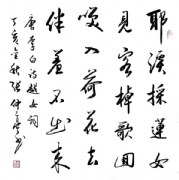 耶溪採蓮女
見客棹歌回
笑入荷花去
佯羞不出来
唐李白詩越女詞
丁亥金秋張仲亭书